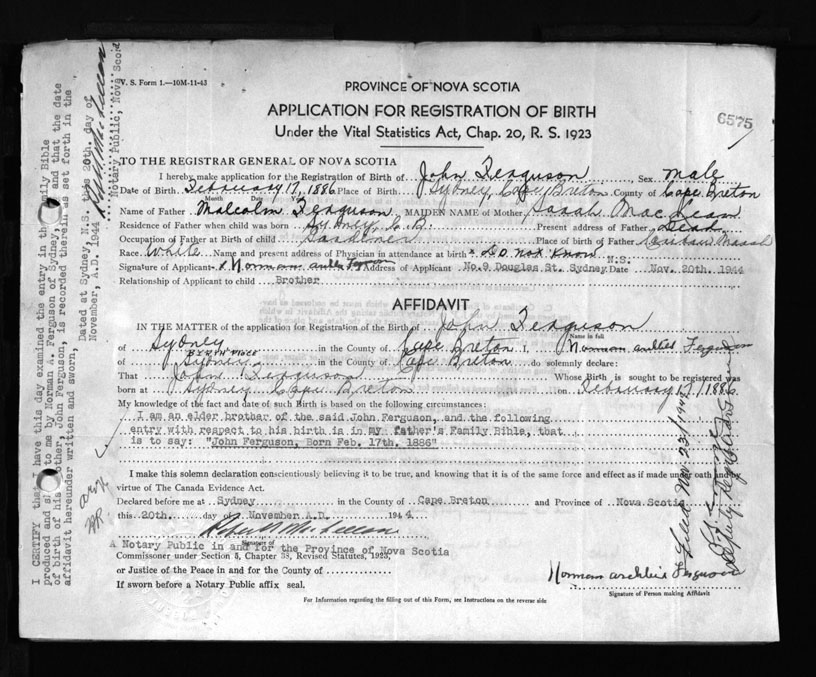 V. S. Form 1.—10M-11-43
PROVINCE OF NOVA SCOTIA
APPLICATION FOR REGISTRATION OF BIRTH
Under the Vital Statistics Act, Chap. 20, R. S. 1923
6575
TO THE REGISTRAR GENERAL OF NOVA SCOTIA
I hereby make application for the Registration of Birth of John Ferguson Sex Male
Date of Birth February 17, 1886 Place of Birth Sydney, Cape Breton County of Cape Breton
Month Date Year
Name of Father Malcolm Ferguson MAIDEN NAME of Mother Sarah MacLean
Residence of Father when child was born Sydney, C. B. Present address of Father Dead
Occupation of Father at Birth of child Place of birth of Father
Race White Name and present address of Physician in attendance at birth Do Not Know
Signature of Applicant Norman Address of Applicant No.9 Douglas St. Sydney N.S. Date Nov. 20th. 1944
Relationship of Applicant to child Brother
AFFIDAVIT
IN THE MATTER of the application for Registration of the Birth of John Ferguson
Name in full
of Sydney in the County of Cape Breton I, Norman Ferguson
BIRTH PLACE
of Sydney in the County of Cape Breton do solemnly declare:
That John Ferguson Whose Birth is sought to be registered was
born at Sydney Cape Breton on February 17, 1886
My knowledge of the fact and date of such Birth is based on the following circumstances:
I am an elder brother of the said John Ferguson, and the following
entry with respect to his birth is in my father's Family Bible, that
is to say: "John Ferguson, Born Feb. 17th. 1886"
I make this solemn declaration conscientiously believing it to be true, and knowing that it is of the same force and effect as if made under oath and by
virtue of The Canada Evidence Act.
Declared before me at Sydney in the County of Cape Breton and Province of Nova Scotia
this 20th. day of November A.D. 1944
Signature of
A Notary Public in and for the Province of Nova Scotia
Commissioner under Section 5, Chapter 38, Revised Statutes, 1923,
or Justice of the Peace in and for the County of
If sworn before a Notary Public affix seal.
Norman Ferguson
Signature of Person making Affidavit
For Information regarding the filling out of this Form, see Instructions on the reverse side
I CERTIFY that I have this day examined the entry in the Family Bible
produced and to me by Norman A. Ferguson of Sydney, and that the date
of birth of his brother, John Ferguson, is recorded therein as set forth in the
affidavit hereunder written and sworn.
Dated at Sydney, N.S. this 20th. day of
November, A.D. 1944
Notary Public, Nova Scotia
Filed Nov 23/1944
Deputy Registrar